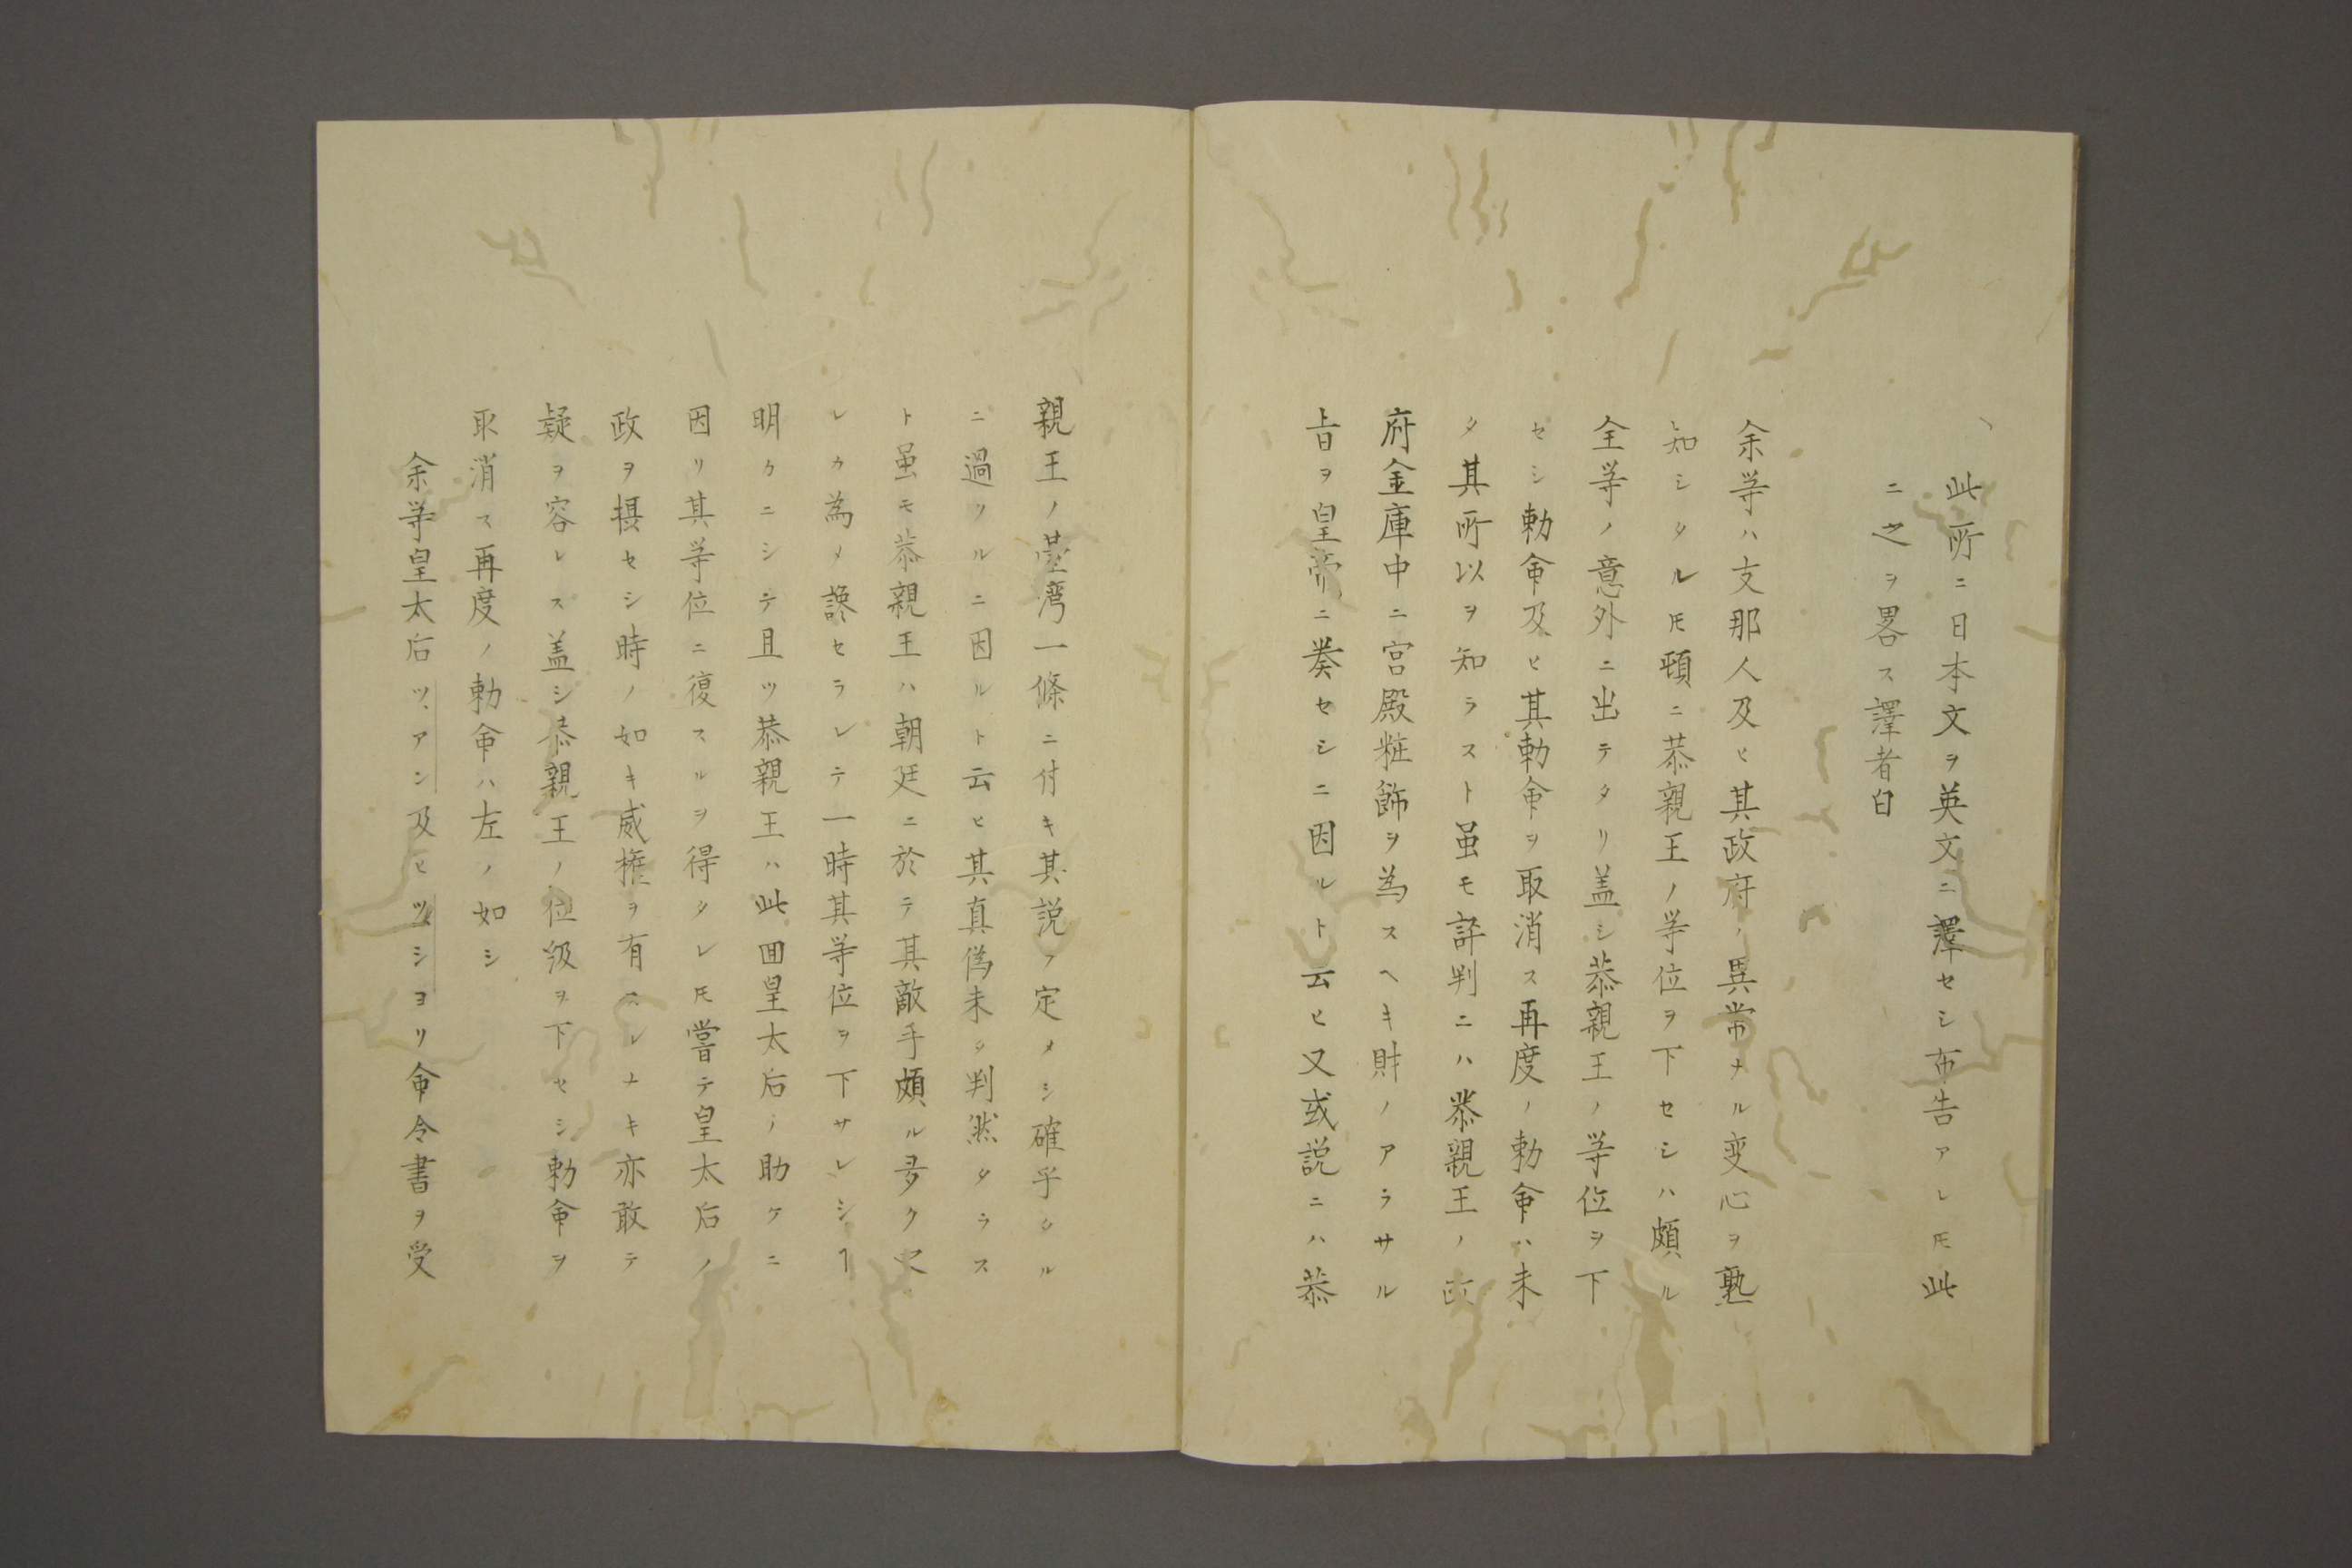 此所ニ日本文ヲ英文ニ譯セシ布告アレ𪜈此
ニ之ヲ畧ス譯者白
余等ハ支那人及ヒ其政府ノ異常ナル変心ヲ熟
知シタル𪜈頓ニ恭親王ノ等位ヲ下セシハ頗ル
全等ノ意外ニ出テタリ盖シ恭親王ノ等位ヲ下
セシ勅命及ヒ其勅命ヲ取消ス再度ノ勅命ハ未
タ其所以ヲ知ラスト虽モ評判ニハ恭親王ノ政
府金庫中ニ宮殿粧飾ヲ為スヘキ財ノアラサル
旨ヲ皇帝ニ奏セシニ因ルト云ヒ又或説ニハ恭
親王ノ臺湾一條ニ付キ其説ヲ定メシ確乎タル
ニ過クルニ因ルト云ヒ其真偽未タ判然タラス
ト虽モ恭親王ハ朝廷ニ於テ其敵手頗ル多ク之
レカ為メ讒セラレテ一時其等位ヲ下サレシヿ
明カニシテ且ツ恭親王ハ此囬皇太后ノ助ケニ
因リ其等位ニ復スルヲ得タレ𪜈嘗テ皇太后ノ
政ヲ摂セシ時ノ如キ威権ヲ有スレナキ亦敢テ
疑ヲ容レス盖シ恭親王ノ位級ヲ下セシ勅命ヲ
取消ス再度ノ勅命ハ左ノ如シ
余等皇太后ツ、アン及ヒツ、シヨリ命令書ヲ受